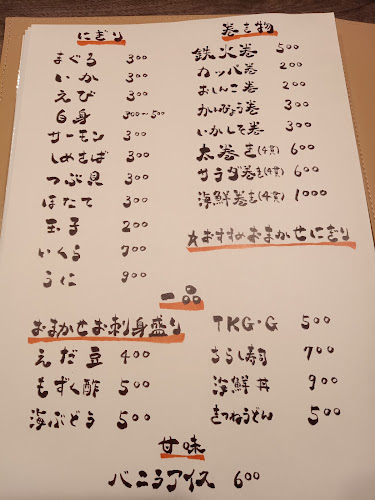 にぎり
まぐろ 300
いか 300
えび 300
白身 300~500
サーモン 300
しめさば 300
つぶ貝 300
ほたて 300
玉子 200
いくら 700
うに 900
巻き物
鉄火巻 500
カッパ巻 200
おしんこ巻 200
かんぴょう巻 300
いかしそ巻 300
太巻き(4貫) 600
サラダ巻き(4貫) 600
海鮮巻き(4貫) 1000
☆おすすめおまかせにぎり
一品
おまかせお刺身盛り
えだ豆 400
もずく酢 500
海ぶどう 500
TKG・G 500
ちらし寿司 700
海鮮丼 900
きつねうどん 500
甘味
バニラアイス 600